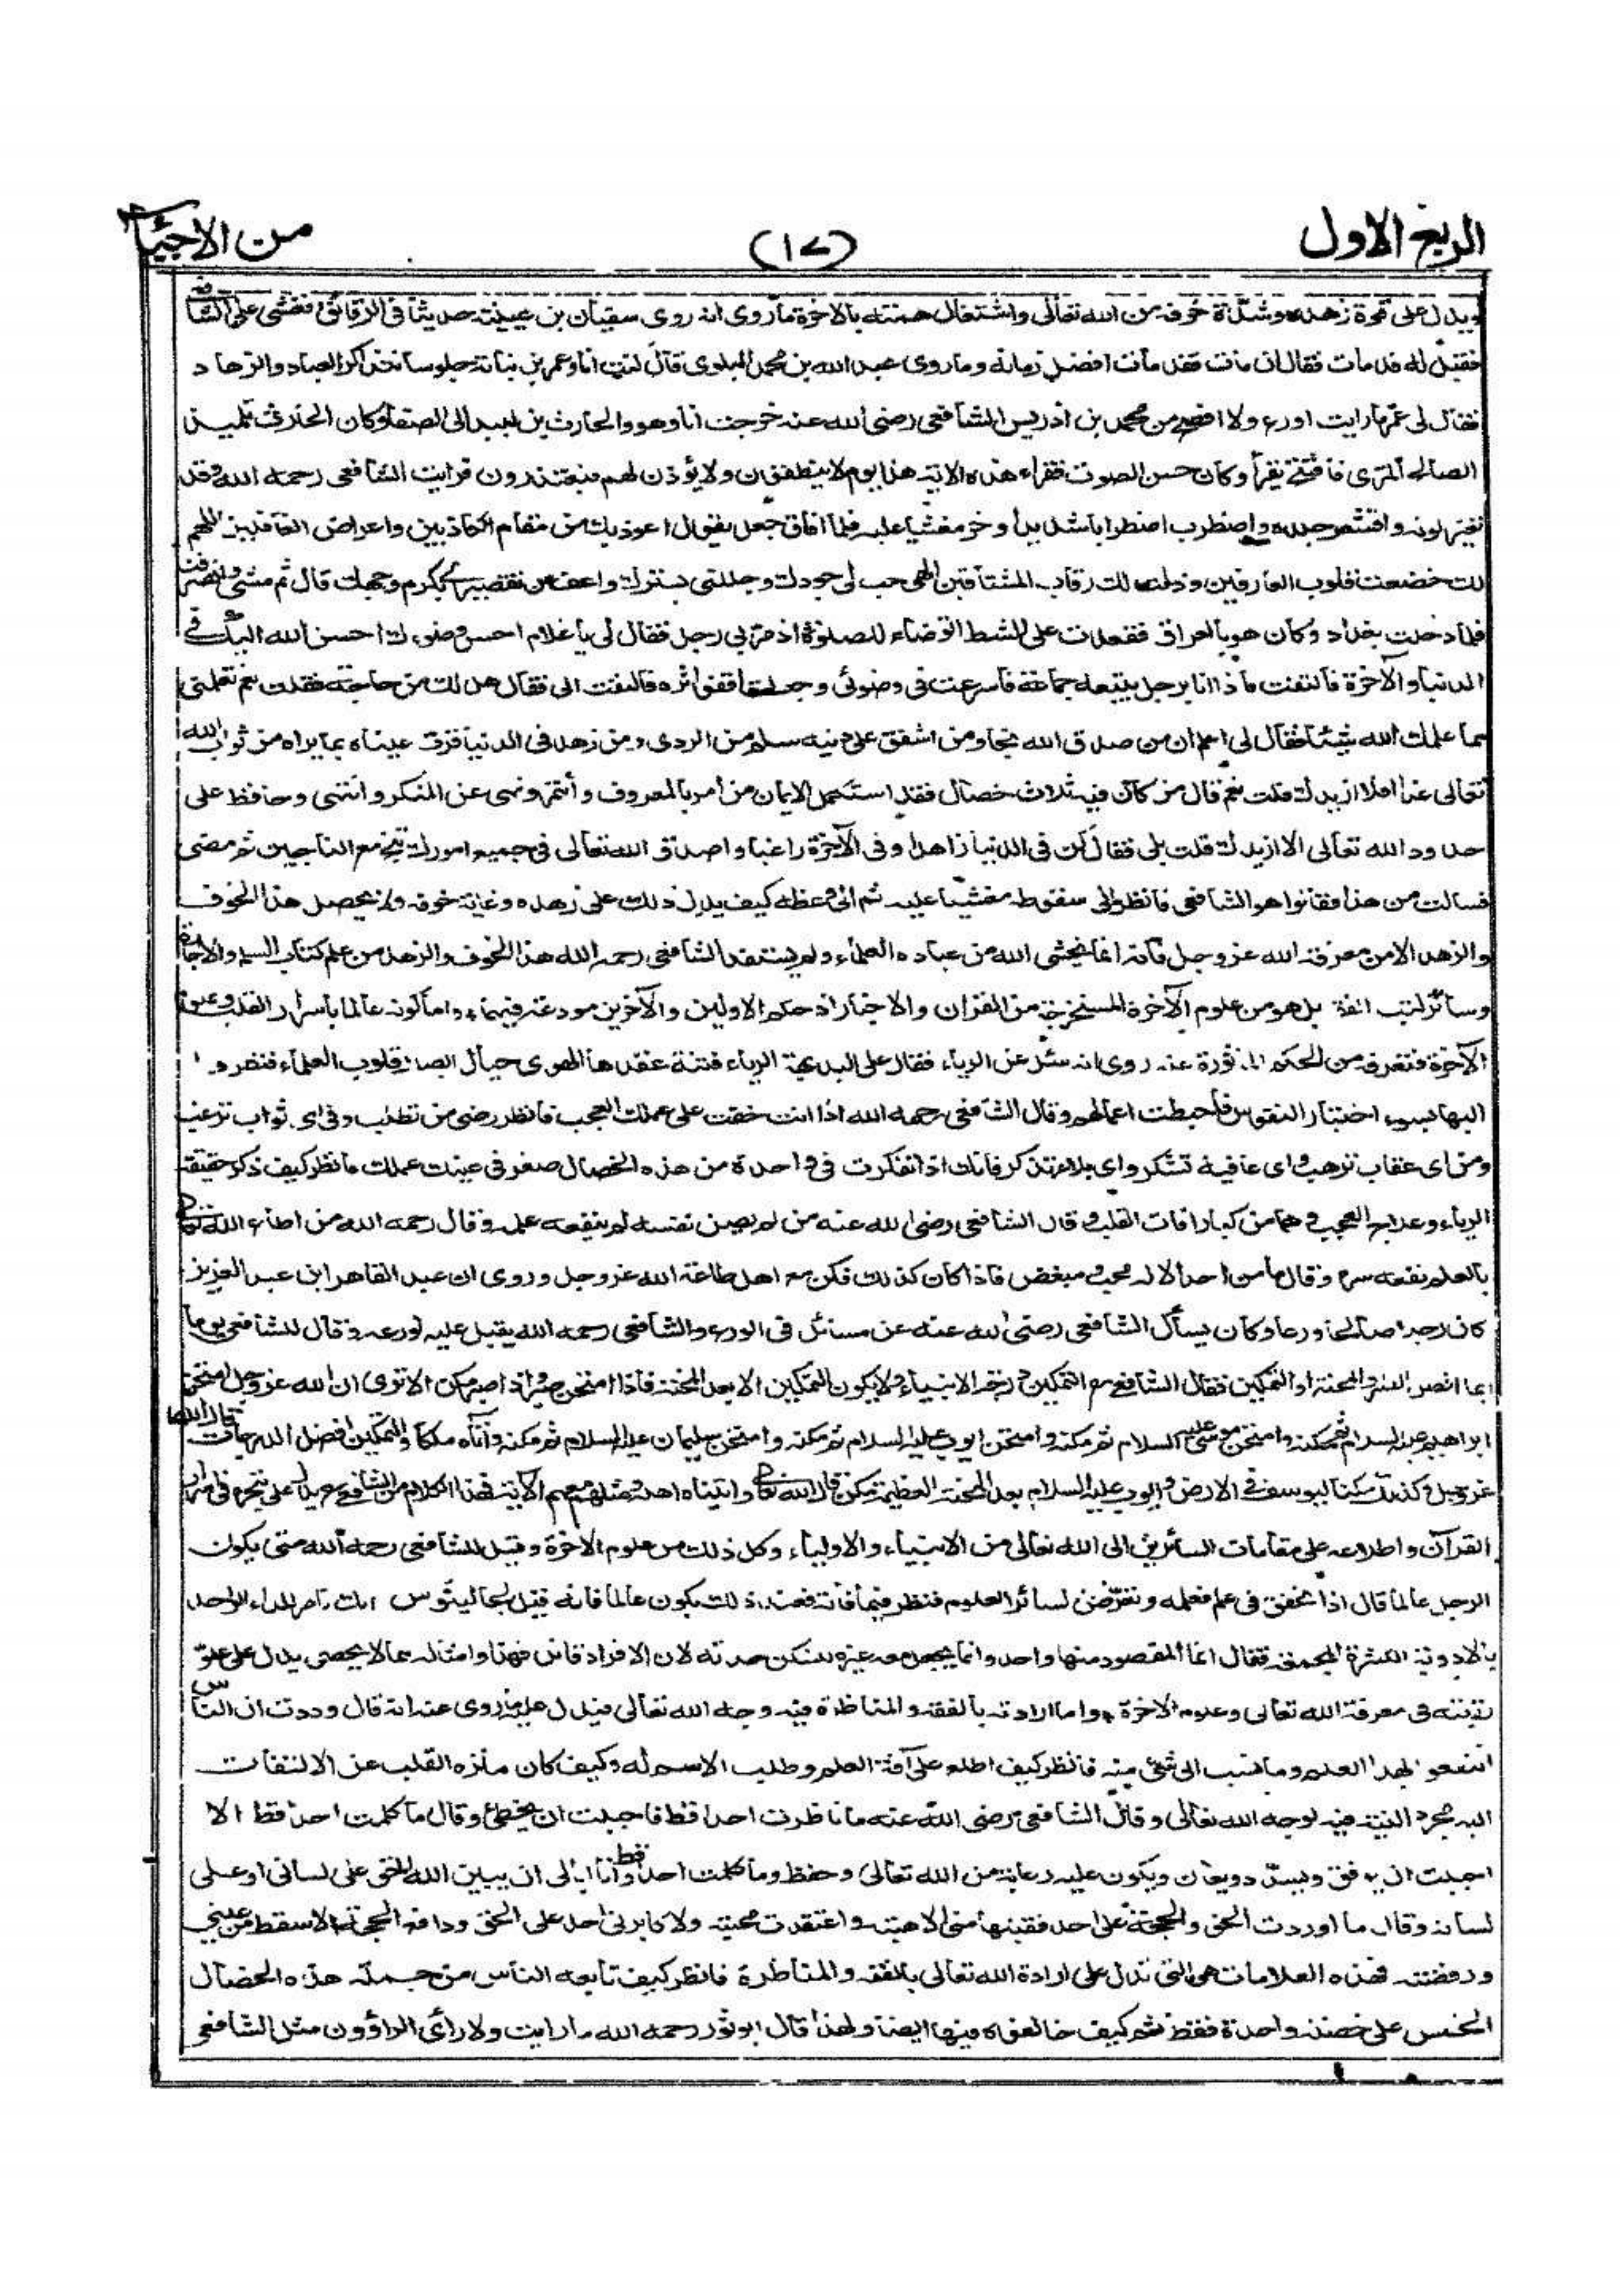 الربع الاول (١٧) من الاحياء
ويدل على قوة زهده وشدة خوفه من الله تعالى واشتغال همته بالاخرة ما روى انه روى سفيان بن عيينة حديثا فى الرقائق فغشى على الشافعى
فقيل له قد مات فقال ان مات فقد مات افضل زمانه وما روى عبد الله بن محمد البلوى قال كنت انا وعمر بن نباتة جلوسا نتذاكر العباد والزهاد
فقال لى عمر ما رايت اورع ولا افصح من محمد بن ادريس الشافعى رضى الله عنه خرجت انا وهو والحارث بن لبيد الى الصفا وكان الحارث تلميذ
الصالح المرى فافتتح يقرأ وكان حسن الصوت فقراء هذه الاية هذا يوم لا ينطقون ولا يؤذن لهم فيعتذرون فرايت الشافعى رحمه الله وقد
تغير لونه واقشعر جلده واضطرب اضطرابا شديدا وخر مغشيا عليه فلما افاق جعل يقول اعوذ بك من مقام الكاذبين واعراض الغافلين اللهم
لك خضعت قلوب العارفين وذلت لك رقاب المشتاقين الهى هب لى جودك وجللنى بسترك واعف عن تقصيرى بكرم وجهك قال ثم مشى وانصرفنا
فلما دخلت بغداد وكان هو بالعراق فقعدت على الشط اتوضاء للصلوة اذ مر بى رجل فقال لى يا غلام احسن وضوءك احسن الله اليك فى
الدنيا والآخرة فالتفت فاذا انا برجل يتبعه جماعة فاسرعت فى وضوئى وجعلت اقفو اثره فالتفت الى فقال هل لك من حاجة فقلت نعم تعلمنى
مما علمك الله شيئا فقال لى اعلم ان من صدق الله نجا ومن اشفق على دينه سلم من الردى ومن زهد فى الدنيا قرت عيناه بما يراه من ثواب الله
تعالى غدا افلا ازيدك قلت نعم قال من كان فيه ثلاث خصال فقد استكمل الايمان من أمر بالمعروف وأئتمر ونهى عن المنكر وانتهى وحافظ على
حدود الله تعالى الا ازيدك قلت بلى فقال كن فى الدنيا زاهدا وفى الآخرة راغبا واصدق الله تعالى فى جميع امورك تنج مع الناجين ثم مضى
فسالت من هذا فقالوا هو الشافعى فانظر الى سقوطه مغشيا عليه ثم الى وعظه كيف يدل ذلك على زهده وغاية خوفه ولا يحصل هذا الخوف
والزهد الا من معرفة الله عز وجل فانه انما يخشى الله من عباده العلماء ولم يستفد الشافعى رحمه الله هذا الخوف والزهد من علم كتاب السلم والاجارة
وسائر كتب الفقه بل هو من علوم الآخرة المستخرجة من القران والاخبار اذ حكم الاولين والآخرين مودعة فيهما، واما كونه عالما باسرار القلب وعلوم
الآخرة فتعرفه من الحكم الماثورة عنه روى انه سئل عن الرياء فقال على البديهة الرياء فتنة عقدها الهوى حيال ابصار قلوب العلماء فنظروا
اليها بسوء اختيار النفوس فاحبطت اعمالهم وقال الشافعى رحمه الله اذا انت خفت على عملك العجب فانظر رضى من تطلب وفى اى ثواب ترغب
ومن اى عقاب ترهب واى عافية تشكر واى بلاء تذكر فانك اذا تفكرت فى واحدة من هذه الخصال صغر فى عينك عملك فانظر كيف ذكر حقيقة
الرياء وعلاج العجب وهما من كبار افات القلب وقال الشافعى رضى الله عنه من لم يصن نفسه لم ينفعه علمه وقال رحمه الله من اطاع الله تعالى
بالعلم نفعه سره وقال ما من احد الا له محب ومبغض فاذا كان كذلك فكن مع اهل طاعة الله عز وجل وروى ان عبد القاهر ابن عبد العزيز
كان رجلا صالحا ورعا وكان يسأل الشافعى رضى الله عنه عن مسائل فى الورع والشافعى رحمه الله يقبل عليه لورعه وقال للشافعى يوما
ايما افضل الصبر او المحنة او التمكين فقال الشافعى التمكين درجة الانبياء ولا يكون التمكين الا بعد المحنة فاذا امتحن صبر واذا صبر مكن الا ترى ان الله عز وجل امتحن
ابراهيم عليه السلام ثم مكنه وامتحن موسى عليه السلام ثم مكنه وامتحن ايوب عليه السلام ثم مكنه وامتحن سليمان عليه السلام ثم مكنه وآتاه ملكا والتمكين افضل الدرجات قال الله
عز وجل وكذلك مكنا ليوسف فى الارض وايوب عليه السلام بعد المحنة العظيمة مكن قال الله تعالى واتيناه اهله ومثلهم معهم الاية فهذا الكلام من الشافعى يدل على تبحره فى اسرار
القرآن واطلاعه على مقامات السائرين الى الله تعالى من الانبياء والاولياء وكل ذلك من علوم الاخرة وقيل للشافعى رحمه الله متى يكون
الرجل عالما قال اذا تحقق فى علم فعلمه وتعرض لسائر العلوم فنظر فيما فاته فعند ذلك يكون عالما فانه قيل لجالينوس انك تامر للداء الواحد
بالادوية الكثيرة المجمعة فقال انما المقصود منها واحد وانما يجعل معه غيره ليسكن حدته لان الافراد قاتل فهذا وامثاله مما لا يحصى يدل على علو
رتبته فى معرفة الله تعالى وعلوم الاخرة، واما ارادته بالفقه والمناظرة فيه وجه الله تعالى فيدل عليه ما روى عنه انه قال وددت ان الناس
انتفعوا بهذا العلم وما نسب الى شئ منه فانظر كيف اطلع على آفة العلم وطلب الاسم له وكيف كان منزه القلب عن الالتفات
اليه مجرد النية فيه لوجه الله تعالى وقال الشافعى رضى الله عنه ما ناظرت احدا قط فاحببت ان يخطئ وقال ما كلمت احدا قط الا
احببت ان يوفق ويسدد ويعان ويكون عليه رعاية من الله تعالى وحفظ وما كلمت احدا قط وأنا ابالى ان يبين الله الحق على لسانى او على
لسانه وقال ما اوردت الحق والحجة على احد فقبلها منى الا هبته واعتقدت محبته ولا كابرنى احد على الحق ودافع الحجة الا سقط من عينى
ورفضته فهذه العلامات هى التى تدل على ارادة الله تعالى بالفقه والمناظرة فانظر كيف تابعه الناس من جملة هذه الخصال
الخمس على خصلة واحدة فقط ثم كيف خالفوه فيها ايضا ولهذا قال ابو ثور رحمه الله ما رايت ولا رأى الراؤون مثل الشافعى